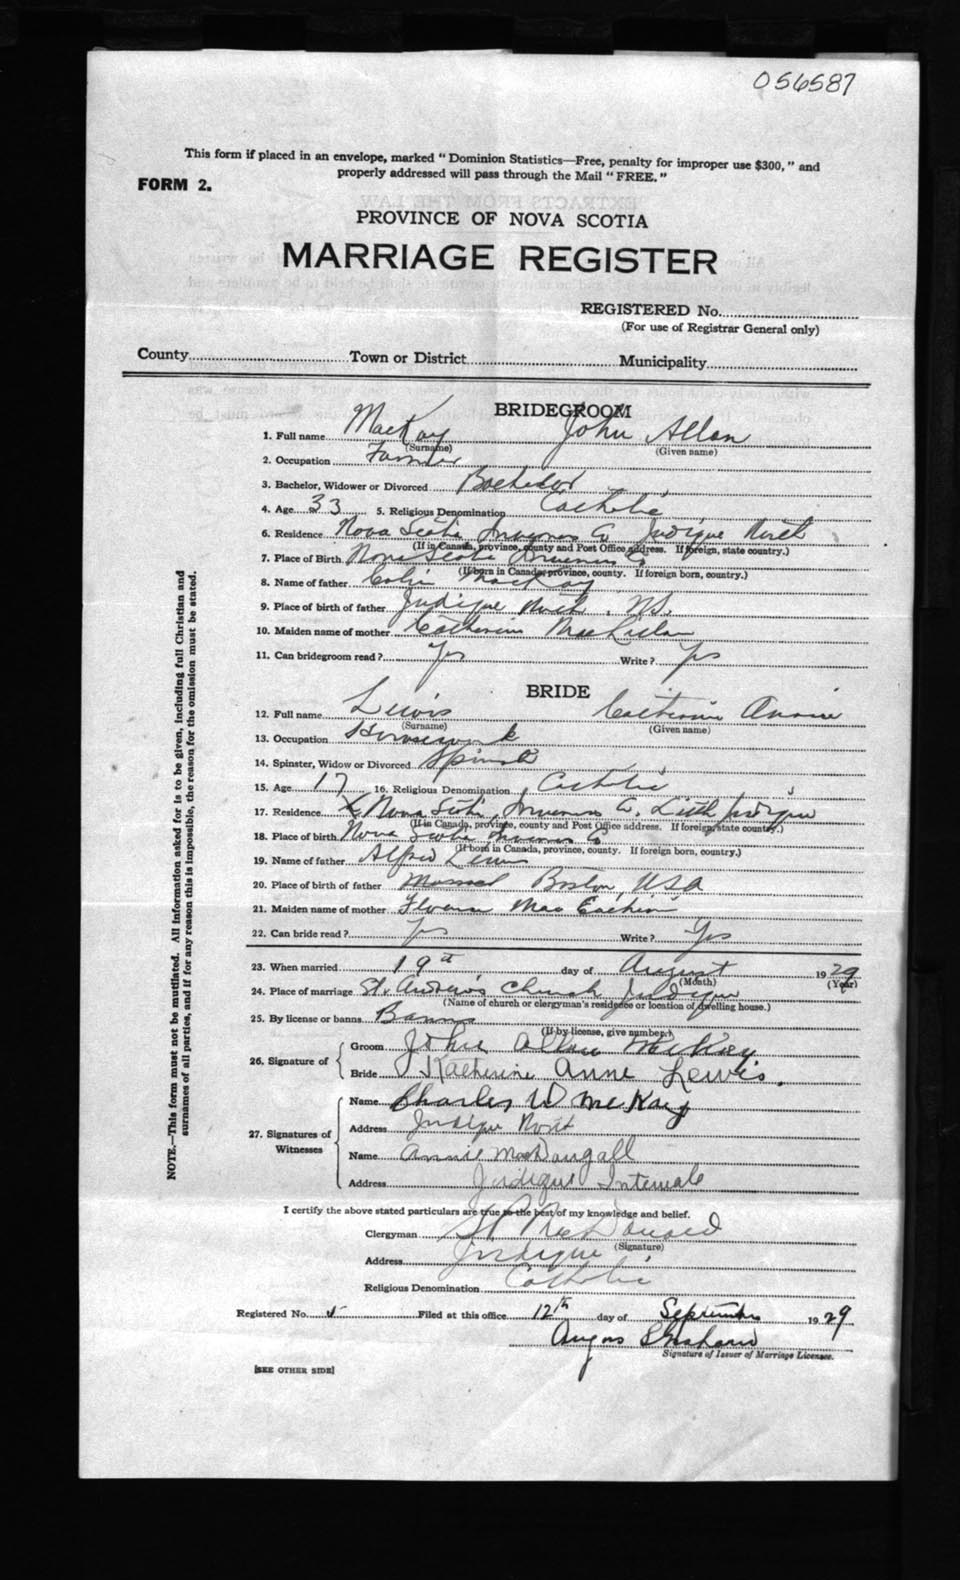 056587
This form if placed in an envelope, marked "Dominion Statistics—Free, penalty for improper use $300," and
properly addressed will pass through the Mail "FREE."
FORM 2.
PROVINCE OF NOVA SCOTIA
MARRIAGE REGISTER
REGISTERED No.
(For use of Registrar General only)
County Town or District Municipality
BRIDEGROOM
1. Full name MacKay John Allan
(Surname) (Given name)
2. Occupation Farmer
3. Bachelor, Widower or Divorced Bachelor
4. Age 33 5. Religious Denomination Catholic
6. Residence Nova Scotia Inverness Co Judique North
(If in Canada, province, county and Post Office address. If foreign, state country.)
7. Place of Birth Nova Scotia Inverness Co
(If born in Canada, province, county. If foreign born, country.)
8. Name of father Colin MacKay
9. Place of birth of father Judique North. N.S.
10. Maiden name of mother Catherine
11. Can bridegroom read? Yes Write? Yes
BRIDE
12. Full name Lewis Catherine Annie
(Surname) (Given name)
13. Occupation Housework
14. Spinster, Widow or Divorced Spinster
15. Age 17 16. Religious Denomination Catholic
17. Residence Nova Scotia, Inverness Co. Little Judique
(If in Canada, province, county and Post Office address. If foreign, state country.)
18. Place of birth Nova Scotia Inverness Co
(If born in Canada, province, county. If foreign born, country.)
19. Name of father Alfred Lewis
20. Place of birth of father Boston, USA
21. Maiden name of mother Florence Mac Eachern
22. Can bride read? Yes Write? Yes
23. When married 19th day of August 1929
(Month) (Year)
24. Place of marriage St. Andrew's Church Judique
(Name of church or clergyman's residence or location of dwelling house.)
25. By license or banns Banns
(If by license, give number.)
26. Signature of Groom John Allan McKay
Bride Katherine Anne Lewis.
27. Signatures of Witnesses Name Charles W McKay
Address Judique North
Name Annie MacDougall
Address Judique Intervale
I certify the above stated particulars are true to the best of my knowledge and belief.
Clergyman MacDonald
(Signature)
Address Judique
Religious Denomination Catholic
Registered No. 5 Filed at this office 12th day of September 1929
Angus
Signature of Issuer of Marriage Licenses.
[SEE OTHER SIDE]
NOTE.—This form must not be mutilated. All information asked for is to be given, including full Christian and
surnames of all parties, and if for any reason this is impossible, the reason for the omission must be stated.